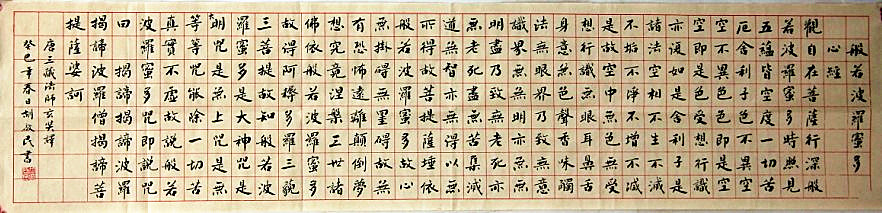 般若波羅蜜多
心經
觀自在菩薩行深般
若波羅蜜多時照見
五蘊皆空度一切苦
厄舍利子色不異空
空不異色色即是空
空即是色受想行識
亦復如是舍利子是
諸法空相不生不滅
不垢不淨不增不減
是故空中無色無受
想行識無眼耳鼻舌
身意無色聲香味觸
法無眼界乃至無意
識界無無明亦無無
明盡乃至無老死亦
無老死盡無苦集滅
道無智亦無得以無
所得故菩提薩埵依
般若波羅蜜多故心
無掛礙無罣礙故無
有恐怖遠離顛倒夢
想究竟涅槃三世諸
佛依般若波羅蜜多
故得阿耨多羅三藐
三菩提故知般若波
羅蜜多是大神咒是
大明咒是無上咒是無
等等咒能除一切苦
真實不虛故說般若
波羅蜜多咒即說咒
曰 揭諦揭諦波羅
揭諦波羅僧揭諦菩
提薩婆訶
唐三藏法師玄奘譯
癸巳年春日胡民書